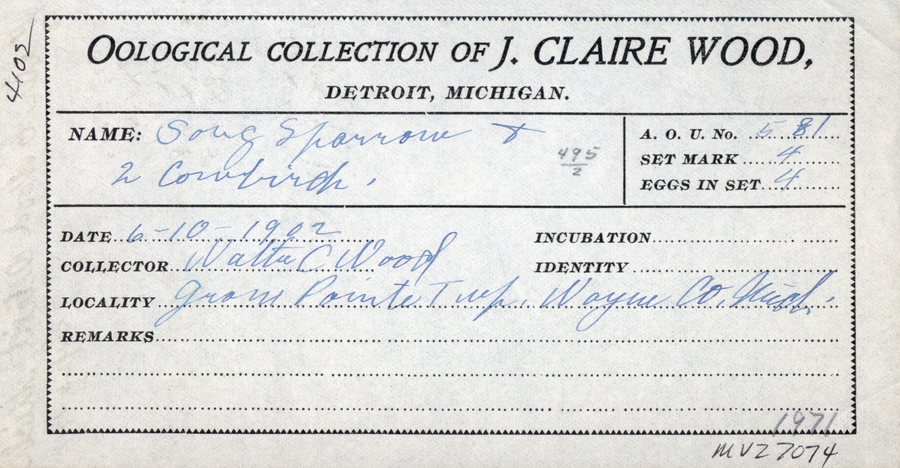 4102
OOLOGICAL COLLECTION OF J. CLAIRE WOOD,
DETROIT, MICHIGAN.
NAME: Song Sparrow &
2 Cowbirds.
495
2
A. O. U. No. 581
SET MARK 4
EGGS IN SET 4
DATE 6-10-1902
INCUBATION
COLLECTOR Walter C Wood
IDENTITY
LOCALITY Grosse Pointe Twp. Wayne Co. Mich.
REMARKS
1971
MVZ 7074